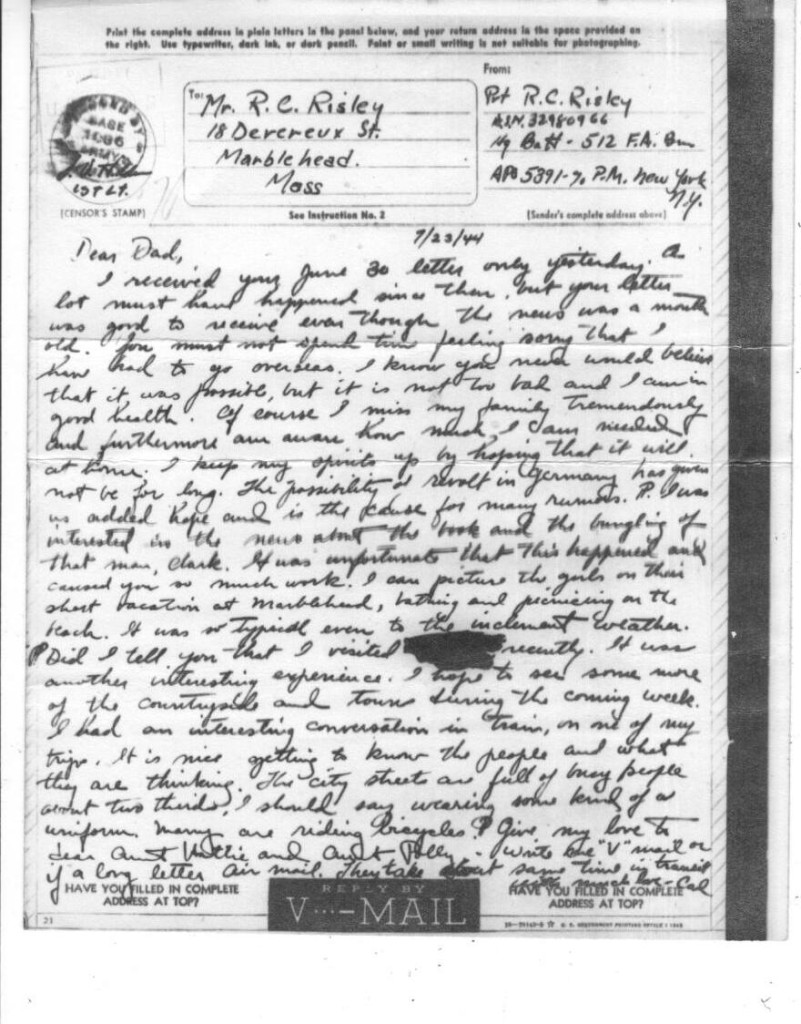 Print the complete address in plain letters in the panel below, and your return address in the space provided on
the right. Use typewriter, dark ink, or dark pencil. Faint or small writing is not suitable for photographing.
PASSED BY
BASE
1086
ARMY
1st Lt.
[CENSOR'S STAMP]
To:
Mr. R. C. Risley
18 Devereux St.
Marblehead.
Mass
See Instruction No. 2
From:
Pvt R. C. Risley
A.S.N. 32980966
Hq Batt - 512 F.A. Bn
APO 5891-% P.M. New York
N.Y.
[Sender's complete address above]
7/23/44
Dear Dad,
I received your June 30 letter only yesterday. A
lot must have happened since then, but your letter
was good to receive even though the news was a month
old. You must not spend time feeling sorry that I
have had to go overseas. I know you never would believe
that it was possible, but it is not too bad and I am in
good health. Of course I miss my family tremendously
and furthermore am aware how much I am needed
at home. I keep my spirits up by hoping that it will
not be for long. The possibility of revolt in Germany has given
us added hope and is the cause for many rumors. P. I was
interested in the news about the book and the bungling of
that man, Clark. It was unfortunate that this happened and
caused you so much work. I can picture the girls on their
short vacation at Marblehead, bathing and picnicing on the
beach. It was so typical even to the inclement weather.
P Did I tell you that I visited recently. It was
another interesting experience. I hope to see some more
of the countryside and towns during the coming week.
I had an interesting conversation in train, on one of my
trips. It is nice getting to know the people and what
they are thinking. The city streets are full of busy people
about two thirds, I should say wearing some kind of a
uniform. Many are riding bicycles. P Give my love to
dear Aunt Hattie and Aunt Polly - Write me "V" mail or
if a long letter air mail. They take about same time in transit
with much love - Cal
HAVE YOU FILLED IN COMPLETE
ADDRESS AT TOP?
REPLY BY
V···—MAIL
HAVE YOU FILLED IN COMPLETE
ADDRESS AT TOP?
21
U. S. GOVERNMENT PRINTING OFFICE : 1943